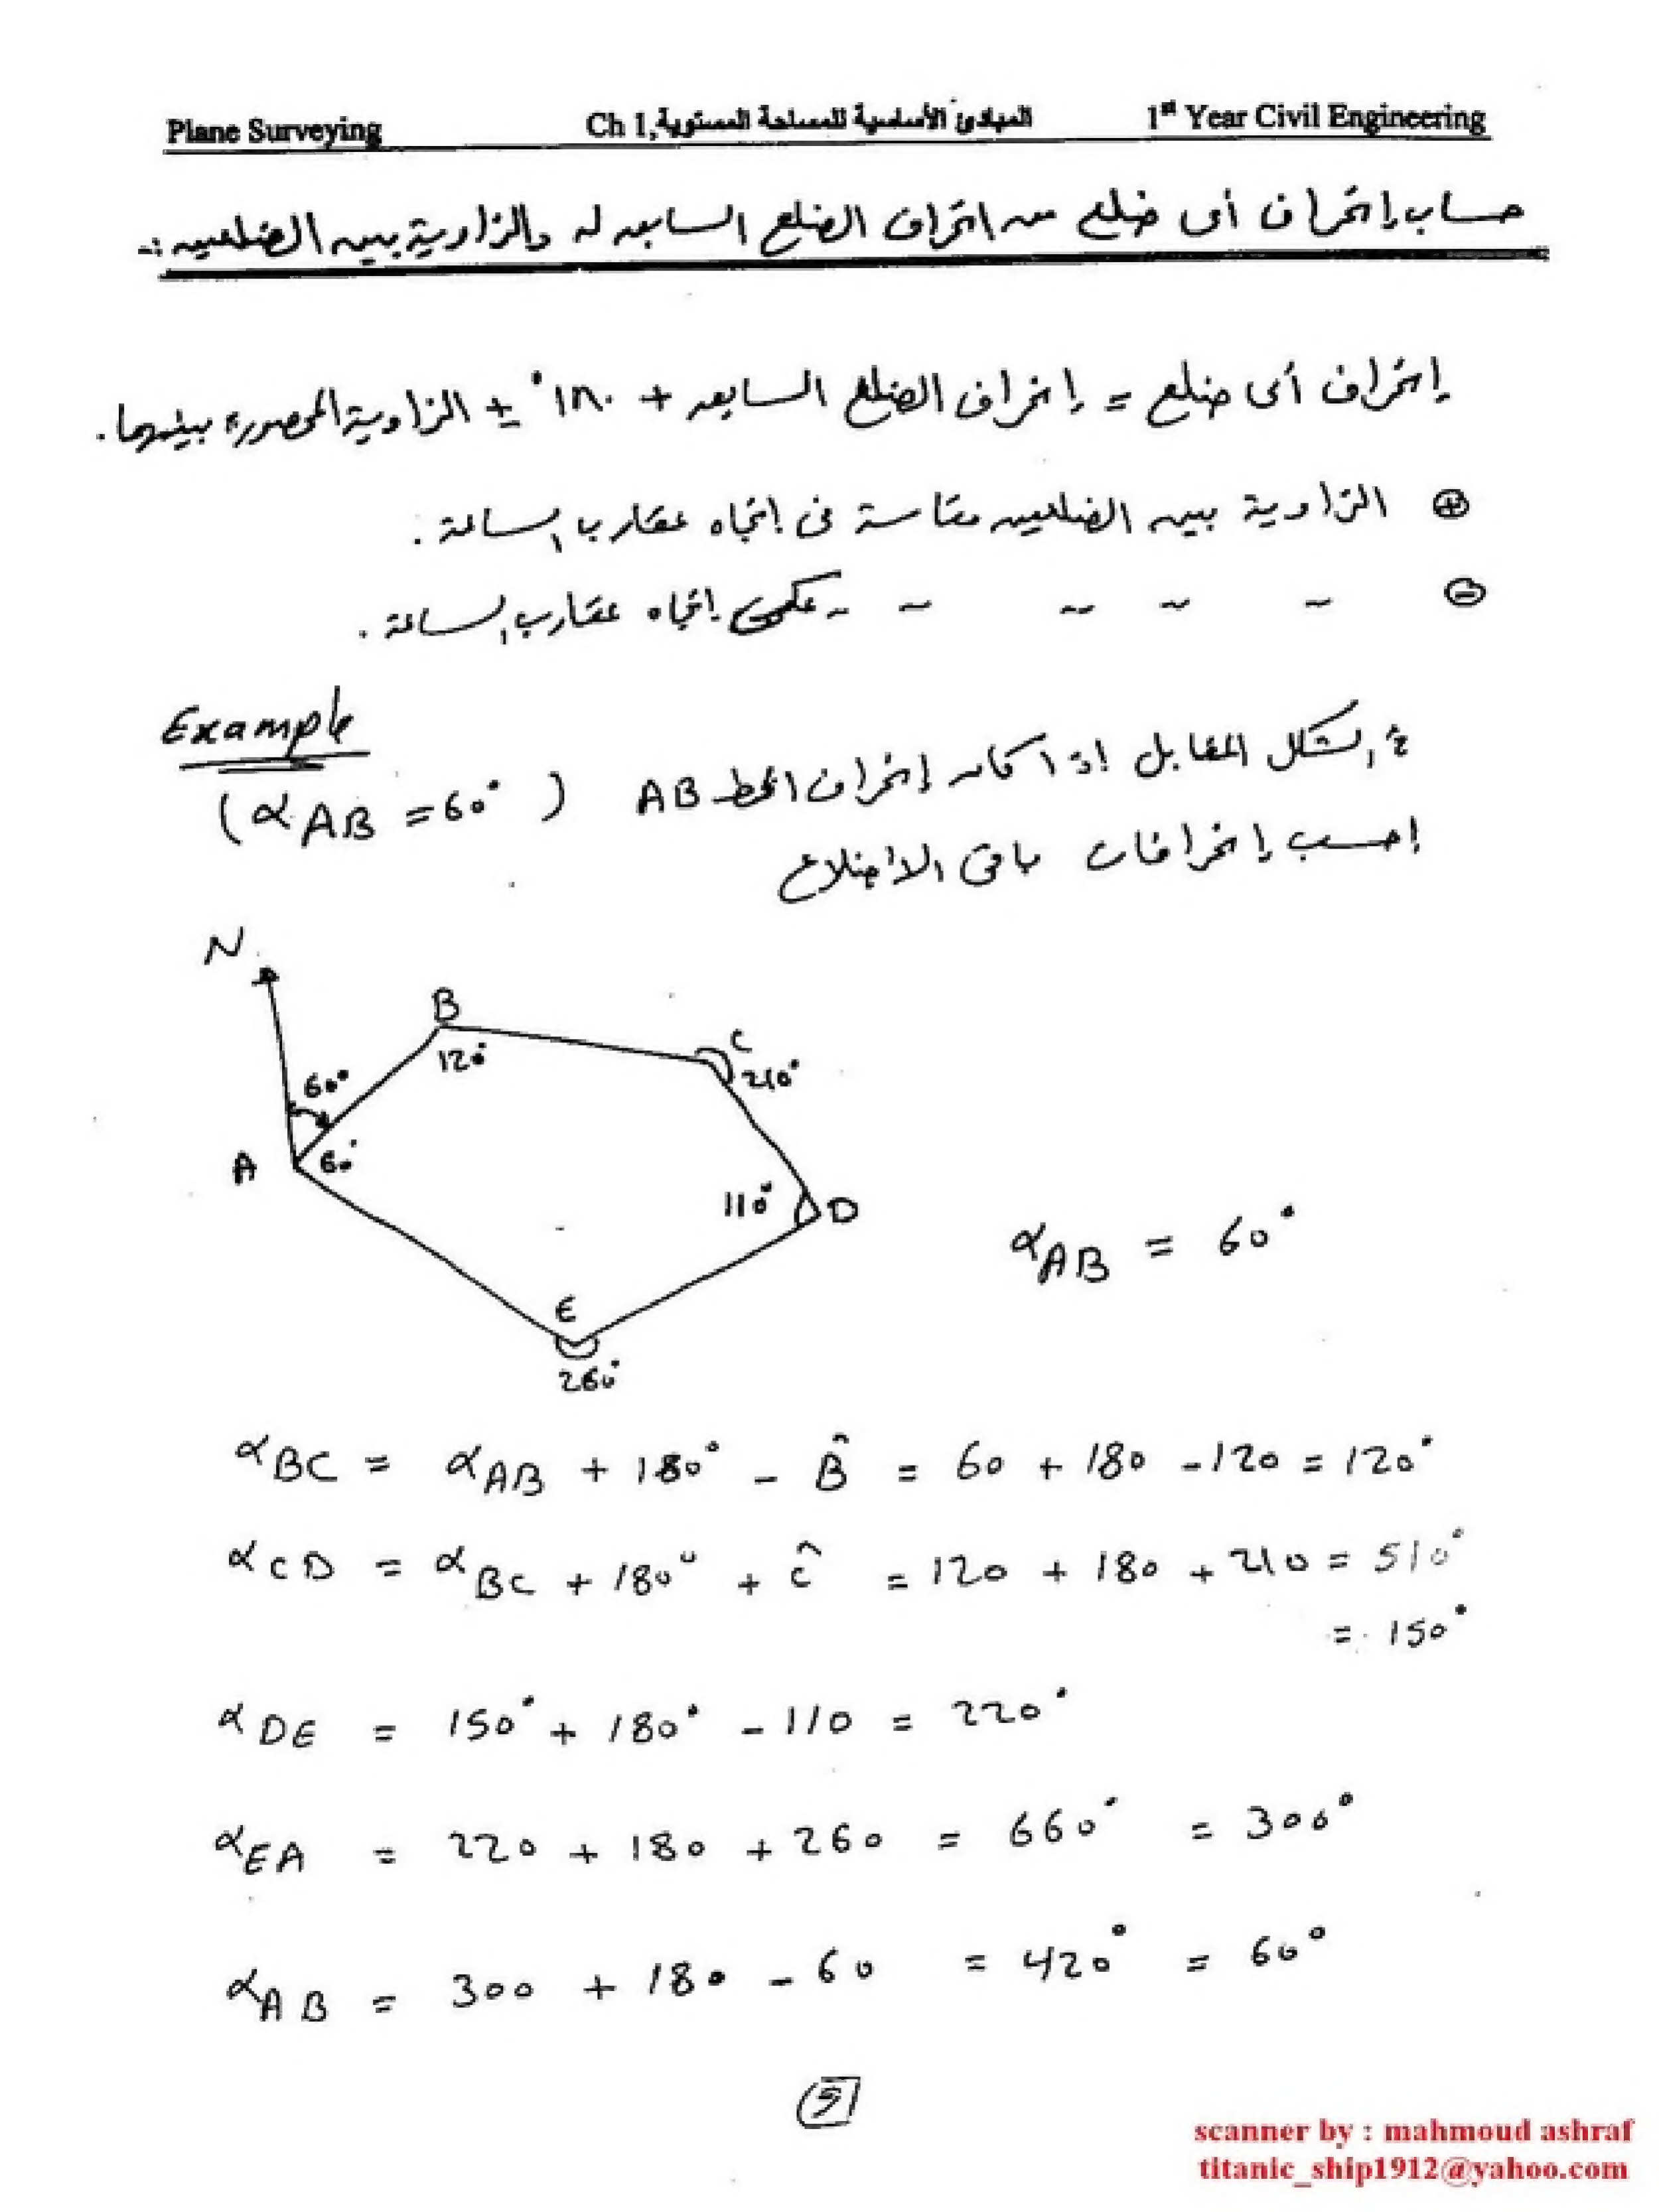 Plane Surveying Ch 1,المبادئ الأساسية للمساحة المستوية 1st Year Civil Engineering
حساب إنحراف أى ضلع من انحراف الضلع السابق له والزاوية بين الضلعين :-
إنحراف أى ضلع = إنحراف الضلع السابق + ١٨٠° ± الزاوية المحصورة بينهما .
⊕ الزاوية بين الضلعين مقاسة فى إتجاه عقارب الساعة .
⊖ ~ ~ ~ ~ - عكس إتجاه عقارب الساعة .
Example
فى الشكل المقابل إذا كان إنحراف الخط AB (αAB = 60°)
إحسب إنحرافات باقى الاضلاع
N
B
C
60°
120°
210°
A
60°
110°
D
αAB = 60°
E
260°
αBC = αAB + 180° - B̂ = 60 + 180 - 120 = 120°
αCD = αBC + 180° + Ĉ = 120 + 180 + 210 = 510°
= 150°
αDE = 150° + 180° - 110 = 220°
αEA = 220 + 180 + 260 = 660° = 300°
αAB = 300 + 180 - 60 = 420° = 60°
5
scanner by : mahmoud ashraf
titanic_ship1912@yahoo.com